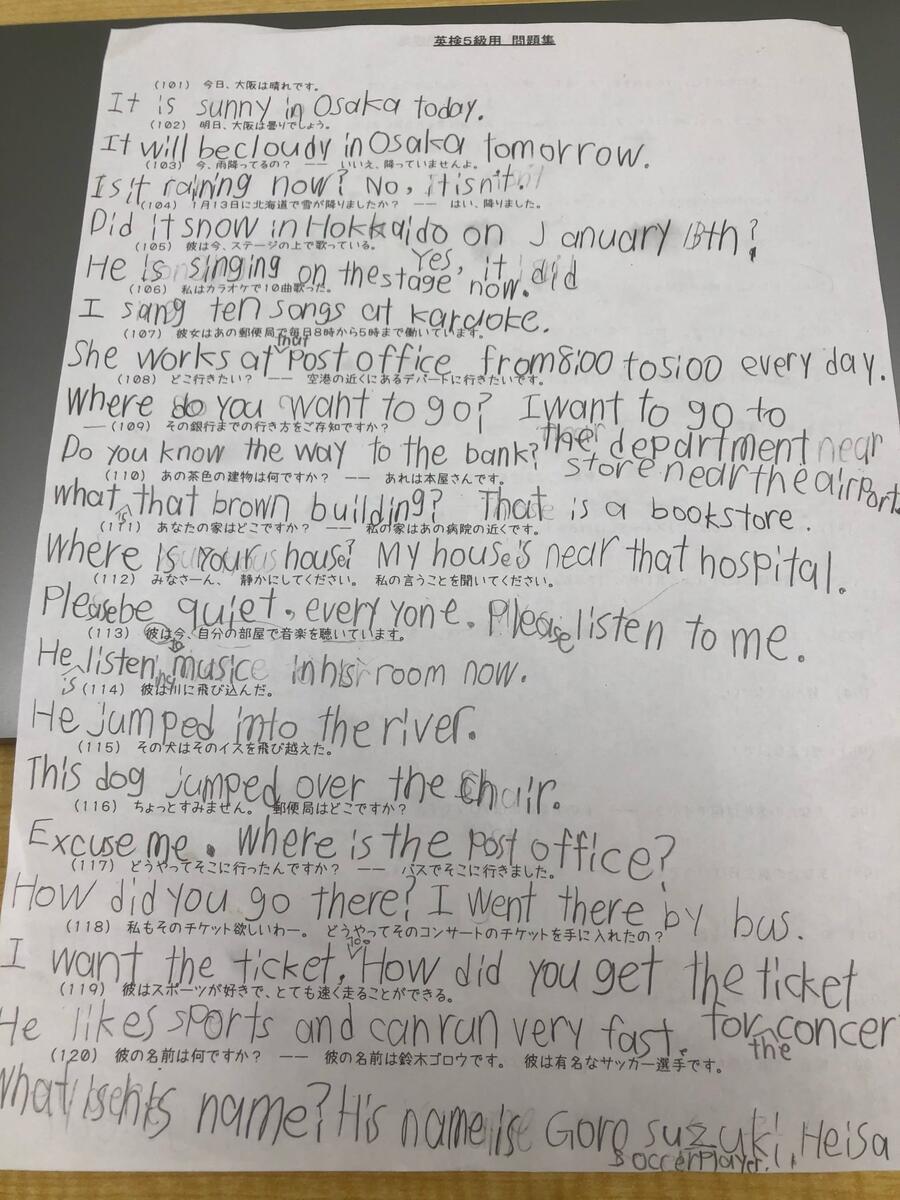 英検５級用 問題集
(101) 今日、大阪は晴れです。
It is sunny in Osaka today.
(102) 明日、大阪は曇りでしょう。
It will be cloudy in Osaka tomorrow.
(103) 今、雨降ってるの？ —— いいえ、降っていませんよ。
Is it raining now? No, it isn't.
(104) 1月13日に北海道で雪が降りましたか？ —— はい、降りました。
Did it snow in Hokkaido on January 13th?
Yes, it did
(105) 彼は今、ステージの上で歌っている。
He is singing on the stage now.
(106) 私はカラオケで10曲歌った。
I sang ten songs at karaoke.
(107) 彼女はあの郵便局で毎日8時から5時まで働いています。
She works at that post office from 8:00 to 5:00 every day.
(108) どこ行きたい？ —— 空港の近くにあるデパートに行きたいです。
Where do you want to go? I want to go to
the department
store near the airport.
(109) その銀行までの行き方をご存知ですか？
Do you know the way to the bank?
(110) あの茶色の建物は何ですか？ —— あれは本屋さんです。
What is that brown building? That is a bookstore.
(111) あなたの家はどこですか？ —— 私の家はあの病院の近くです。
Where is your house? My house is near that hospital.
(112) みなさーん、 静かにしてください。 私の言うことを聞いてください。
Please be quiet, everyone. Please listen to me.
(113) 彼は今、自分の部屋で音楽を聴いています。
He is listening to music in his room now.
(114) 彼は川に飛び込んだ。
He jumped into the river.
(115) その犬はそのイスを飛び越えた。
This dog jumped over the chair.
(116) ちょっとすみません。 郵便局はどこですか？
Excuse me. Where is the post office?
(117) どうやってそこに行ったんですか？ —— バスでそこに行きました。
How did you go there? I went there by bus.
(118) 私もそのチケット欲しいわー。 どうやってそのコンサートのチケットを手に入れたの？
I want the ticket, too. How did you get the ticket
for the concer
(119) 彼はスポーツが好きで、とても速く走ることができる。
He likes sports and can run very fast.
(120) 彼の名前は何ですか？ —— 彼の名前は鈴木ゴロウです。 彼は有名なサッカー選手です。
What is his name? His name is Goro suzuki. He is a
soccer player.